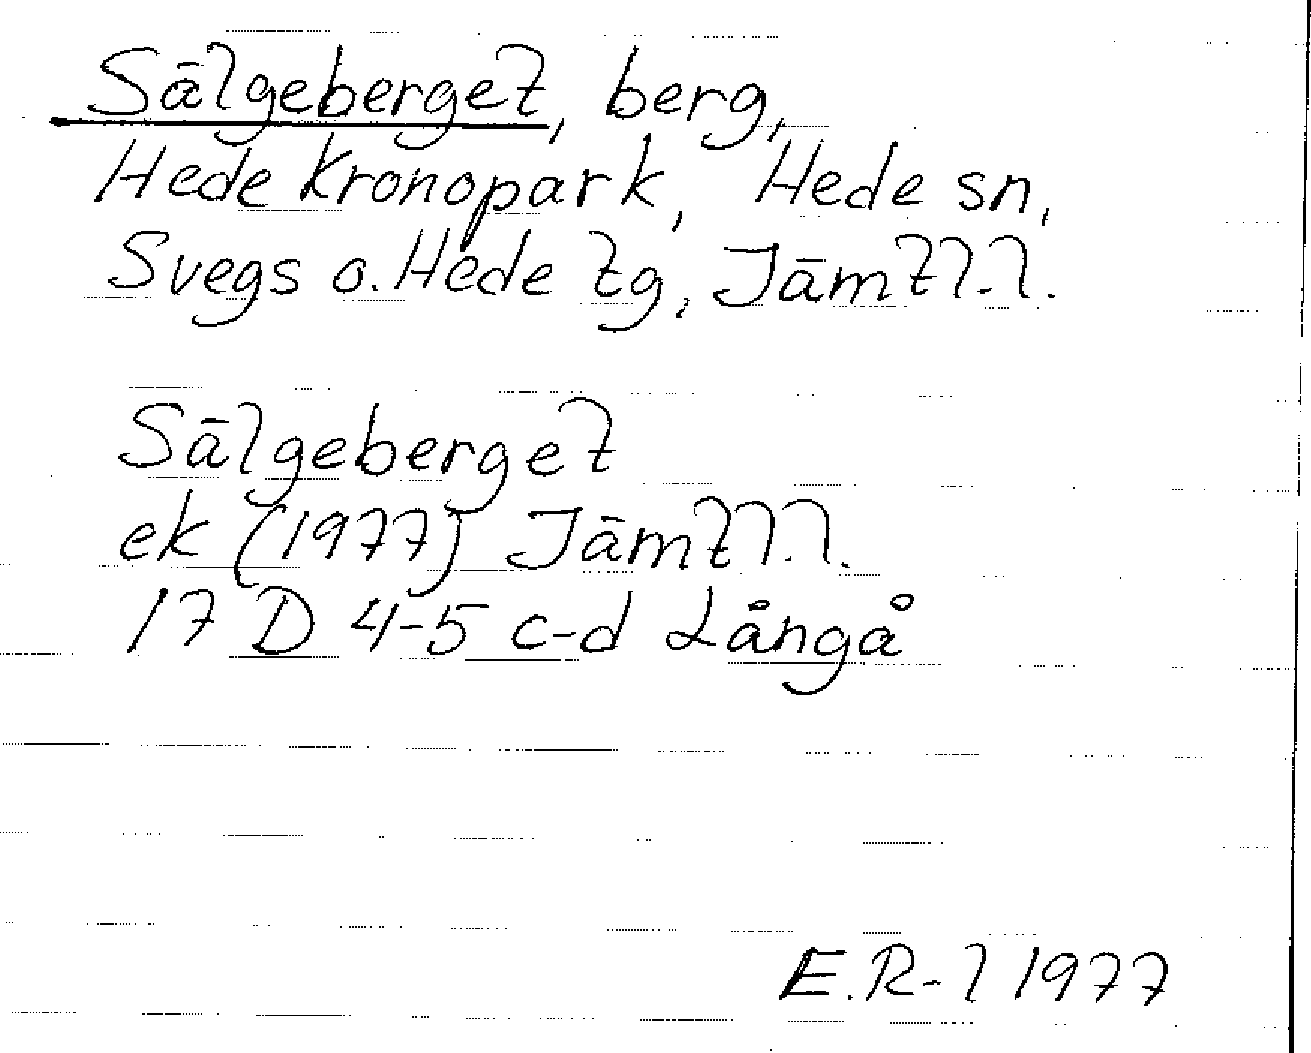 Sälgeberget, berg,
Hede kronopark, Hede sn,
Svegs o. Hede tg, Jämtl. l.
Sälgeberget
ek (1977) Jämtl. l.
17 D 4-5 c-d Långå
E.R-l 1977